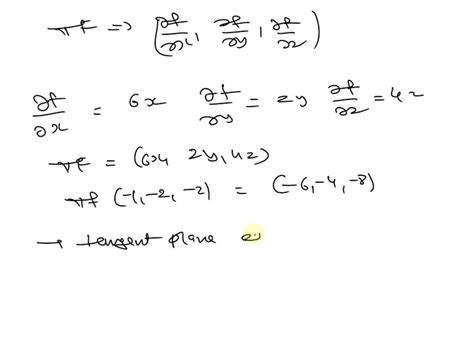 ∇f => (∂f/∂x, ∂f/∂y, ∂f/∂z)
∂f/∂x = 6x ∂f/∂y = 2y ∂f/∂z = 4z
∇f = (6x, 2y, 4z)
∇f (-1, -2, -2) = (-6, -4, -8)
→ tangent plane